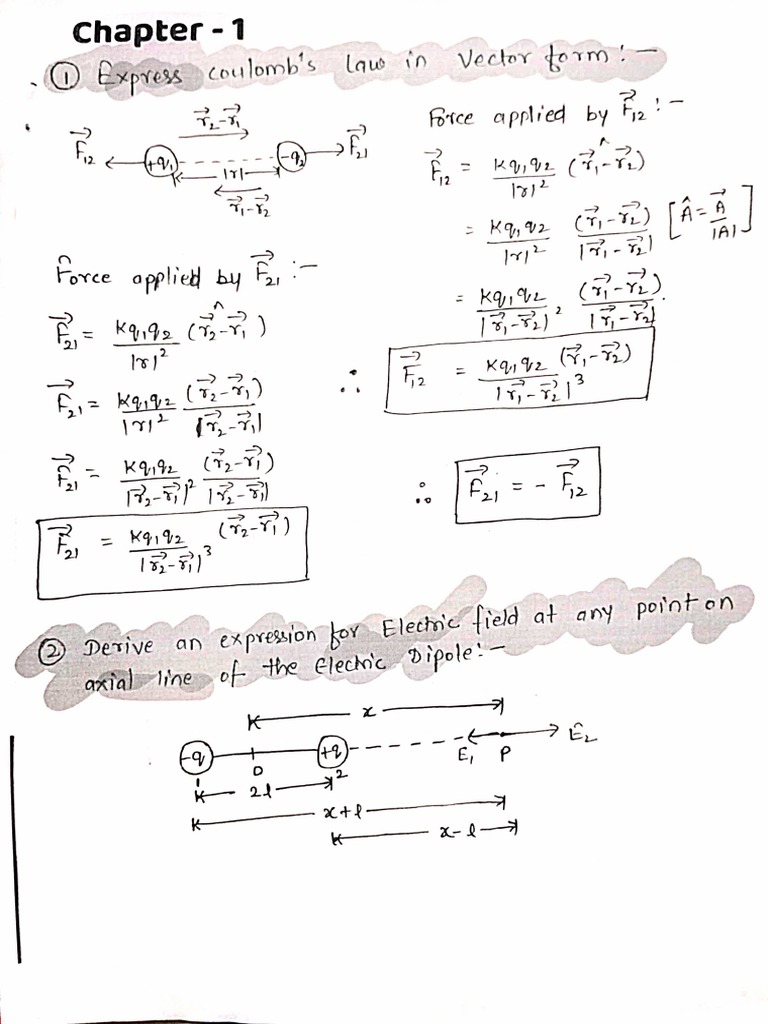 Chapter - 1
① Express coulomb's law in Vector form:-
r⃗₂-r⃗₁
F⃗₁₂ +q₁ -q₂ F⃗₂₁
|r|
r⃗₁-r⃗₂
Force applied by F⃗₂₁ :-
F⃗₂₁ = Kq₁q₂/|r|² (r⃗₂-r⃗₁)^
F⃗₂₁ = Kq₁q₂/|r|² (r⃗₂-r⃗₁)/|r⃗₂-r⃗₁|
F⃗₂₁ = Kq₁q₂/|r⃗₂-r⃗₁|² (r⃗₂-r⃗₁)/|r⃗₂-r⃗₁|
F⃗₂₁ = Kq₁q₂/|r⃗₂-r⃗₁|³ (r⃗₂-r⃗₁)
Force applied by F⃗₁₂ :-
F⃗₁₂ = Kq₁q₂/|r|² (r⃗₁-r⃗₂)^
= Kq₁q₂/|r|² (r⃗₁-r⃗₂)/|r⃗₁-r⃗₂| [Â = A⃗/|A|]
= Kq₁q₂/|r⃗₁-r⃗₂|² (r⃗₁-r⃗₂)/|r⃗₁-r⃗₂|.
∴ F⃗₁₂ = Kq₁q₂/|r⃗₁-r⃗₂|³ (r⃗₁-r⃗₂)
∴ F⃗₂₁ = - F⃗₁₂
② Derive an expression for Electric field at any point on
axial line of the Electric Dipole:-
x
-q O +q E₁ P E⃗₂
1 2l 2
x+l
x-l